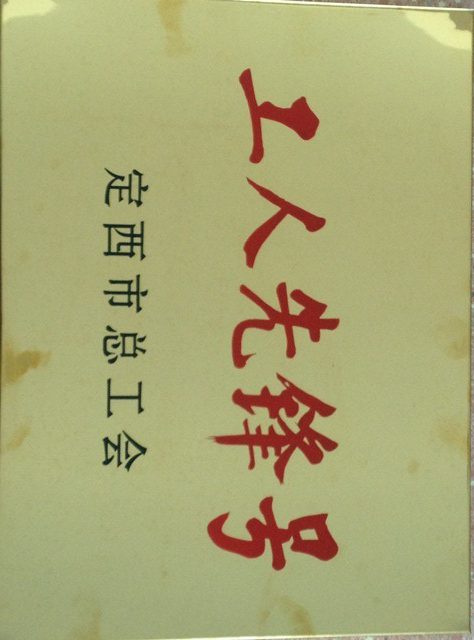 工人先锋号
定西市总工会